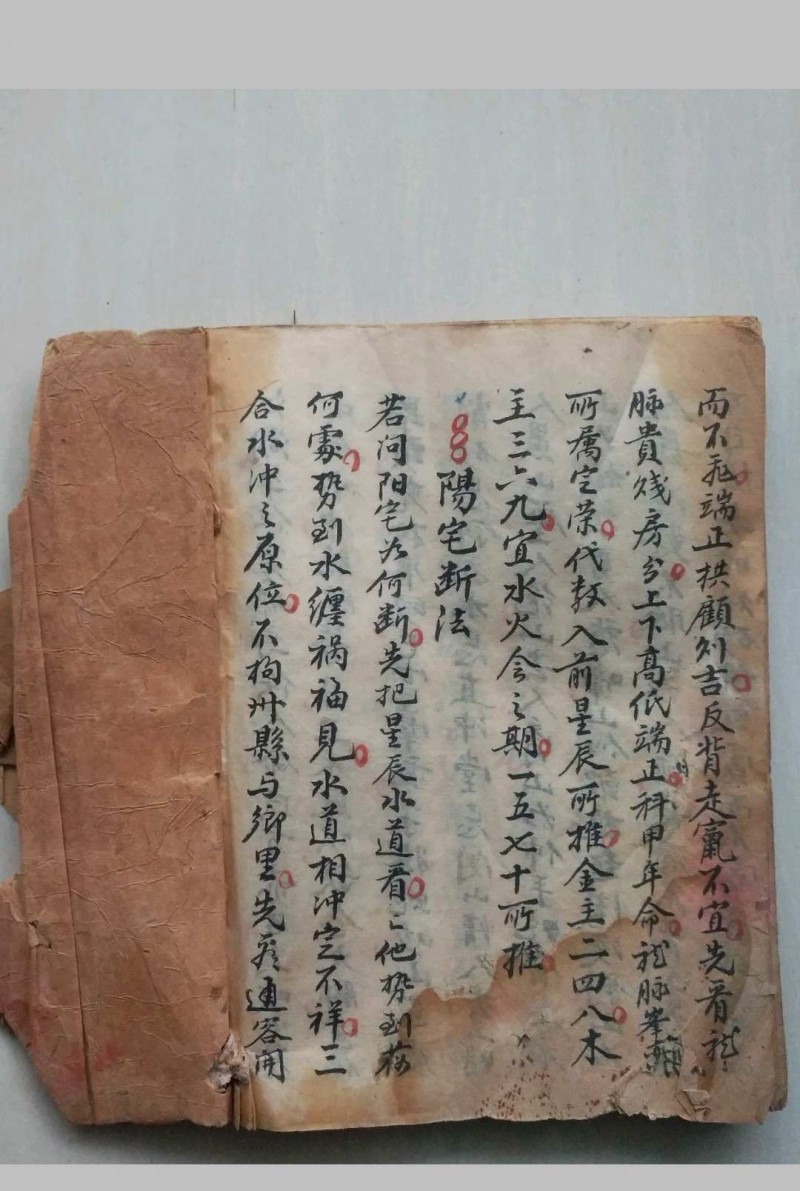 而不乖端正拱顧则吉反背走竄不宜先看龙
脉貴贱房分上下高低端正科甲年命龙脉峯
所属定荣代数入前星辰所推金主二四八木
主三六九宜水火会之期一五七十所推
陽宅断法
若问阳宅为何断先把星辰水道看看他势到在
何處势到水纏祸福見水道相冲定不祥三
合水冲之原位不拘州縣与鄉里先看通容闭